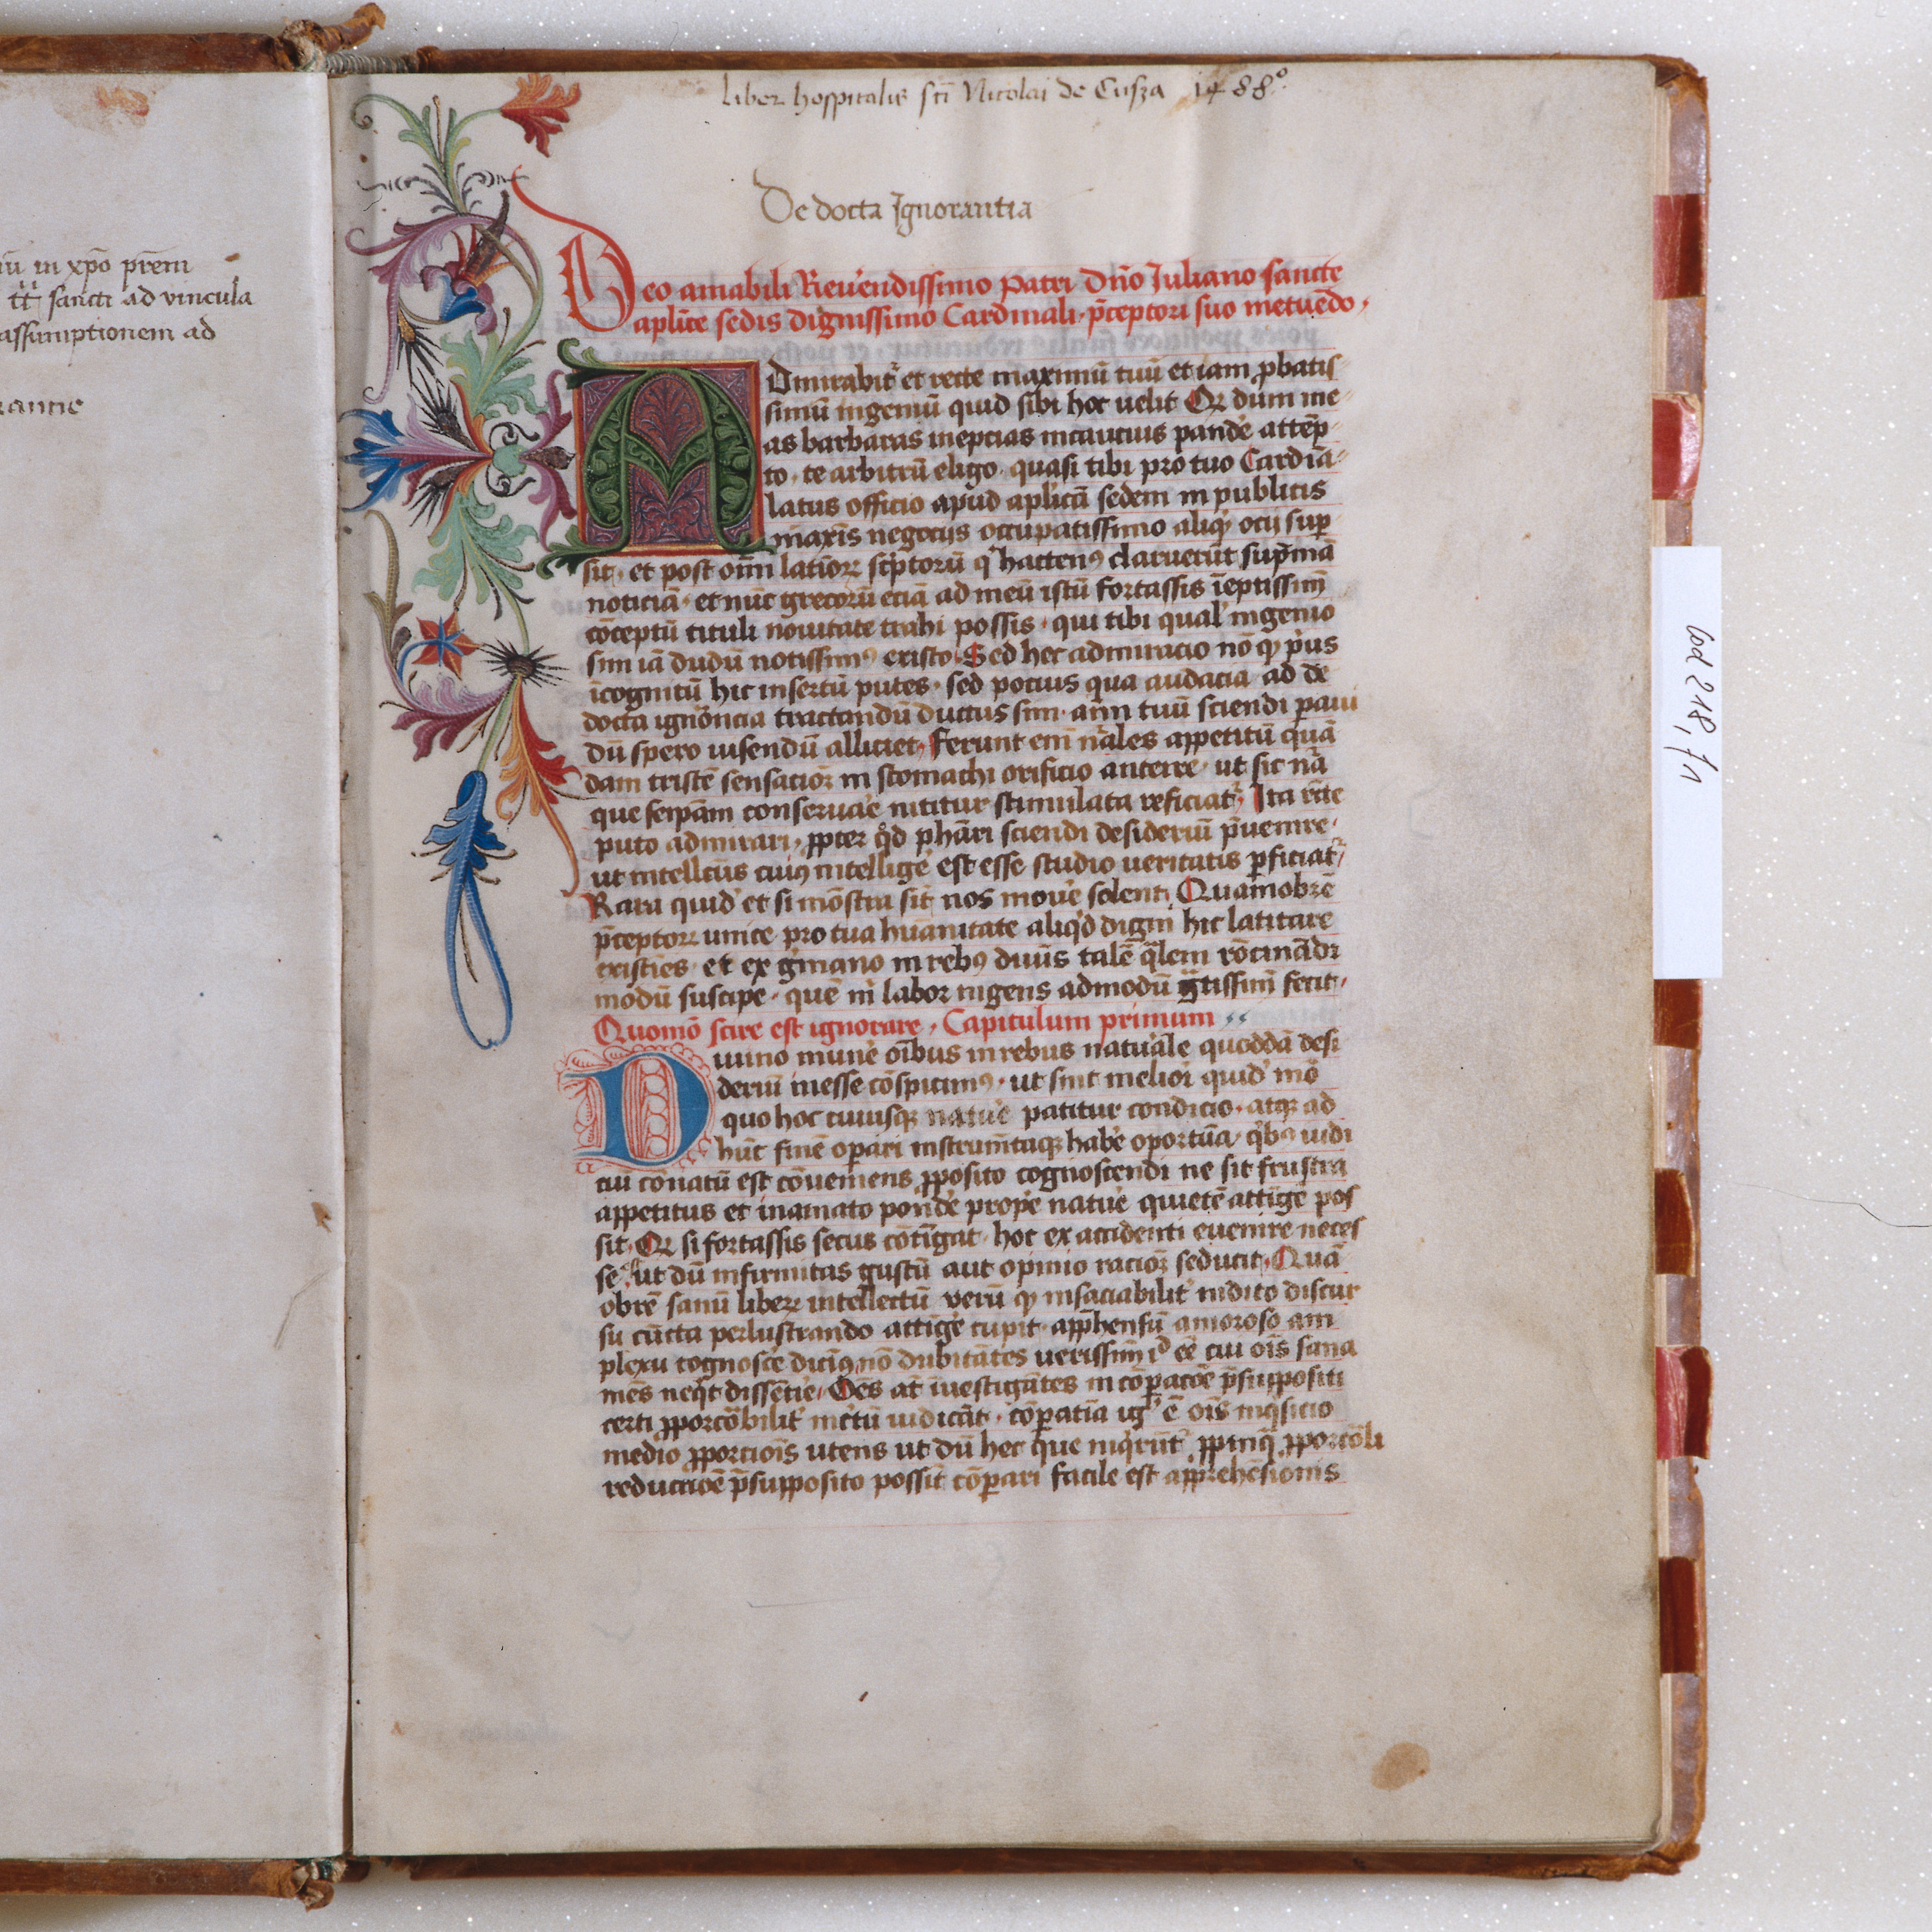 iū in xp̄o pr̄em
tt̄ sancti ad vincula
assumptionem ad
rantie
Liber hospitalis sc̄i Nicolai de Cusza 1488°
De docta Ignorantia
Deo amabili Reuendissimo Patri Dn̄o Iuliano sancte
aplice sedis dignissimo Cardinali, p̄ceptori suo metuēdo,
Admirabit et recte maximū tuū et iam ꝓbatis
simū ingeniū quid sibi hoc uelit Qꝛ dum me
as barbaras ineptias incautius pande attēp
to, te arbitrū eligo, quasi tibi pro tuo Cardīa
latus officio apud aplicā sedem in publicis
maxīs negocijs occupatissimo aliqꝫ ocij suꝑ
sit, et post om̄ latioꝝ sc̓ptorū q̓ hactenꝰ claruerūt sup̄mā
noticiā, et nūc grecorū eciā ad meū istū fortassis īeptissim̄
cōceptū tituli nouitate trahi possis, qui tibi qual' ingenio
sim iā dudū notissimꝰ existo, Sed hec admiracio nō qꝫ p̓us
īcognitū hic insertū putes, sed pocius qua audacia ad de
docta ignōncia tractandū ductus sim, aīm tuū sciendi ꝑaui
dū spero uisendū alliciet, Ferunt em̄ nāles appetitū quā
dam tristē sensacioꝫ in stomachi orificio anteire, ut sic nā
que seip̄am conseruare nititur stimulata reficiat, Ita r̄cte
puto admirari, ꝓpter qd phāri sciendi desideriū p̄uenire,
ut intellcūs cuiꝰ intellige est esse studio ueritatis ꝑficiat,
Rara quid' et si mōstra sīt nos moue solent, Quamobrē
p̄ceptoꝝ unice pro tua hūanitate aliqd digni hic latitare
existīes, et ex gmano in rebꝰ diuīs talē qlem rōcinādi
modū suscipe, quē m labor ingens admodū gtissim̄ fecit,
Quomō scire est ignorare, Capitulum primum
Diuino mune oībus in rebus naturale quoddā desi
deriū inesse cōspicimꝰ, ut sint meliori quid' mō
quo hoc cuiusqꝫ nature patitur condicio, atqꝫ ad
hūc finē operari instrumtaqꝫ habe oportūa, qbꝰ iudi
ciū cōnatū est cōueniens ꝓposito cognoscendi ne sit frustra
appetitus et in amato ponde proprie nature quietē attige pos
sit, Qꝛ si fortassis secus cōtīgat, hoc ex accidenti euenire neces
se, ut dū infirmitas gustū aut opinio racioꝫ seducit, Quā
obrē sanū liberꝝ intellectū verū qꝫ insaciabilit indito discur
su cūcta perlustrando attige cupit, app̄hensū amoroso am
plexu cognosce dicimꝰ nō dubitātes uerissim̄ id ēē cui oīs sana
mēs neqt dissētire, Oēs at īuestigātes in cōꝑacōe p̄suppositi
certi ꝓporcōbilit īc̄tū iudicāt, cōꝑatīa ig' ē oīs inqsicio
medio ꝓporcioīs utens ut dū hec que inqrūt ꝓpinq ꝓporcōli
reductiōe p̄supposito possīt cōꝑari facile est apprehēsionis
Cod 218, f 1